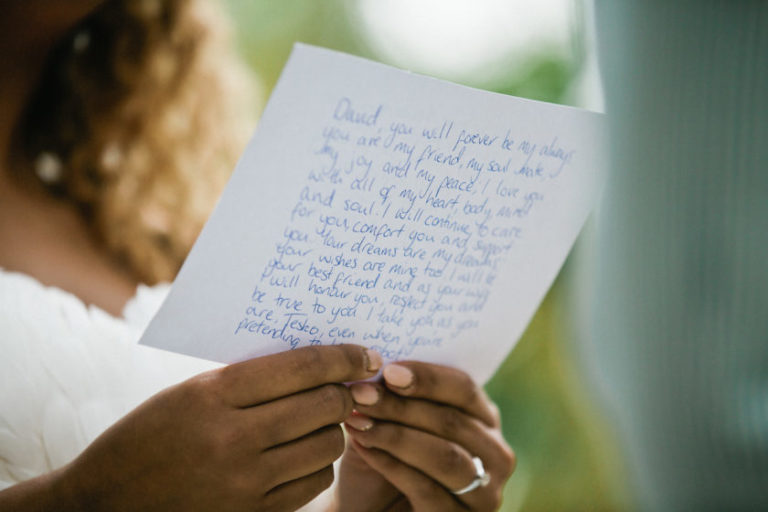 David, you will forever be my always
you are my friend, my soul mate
my joy and my peace, I love you
with all of my heart, body, mind
and soul. I will continue to care
for you, comfort you and support
you. Your dreams are my dreams
your wishes are mine too. I will be
your best friend and as your wife
I will honour you, respect you and
be true to you. I take you as you
are, Tesko, even when you're
pretending to be robot